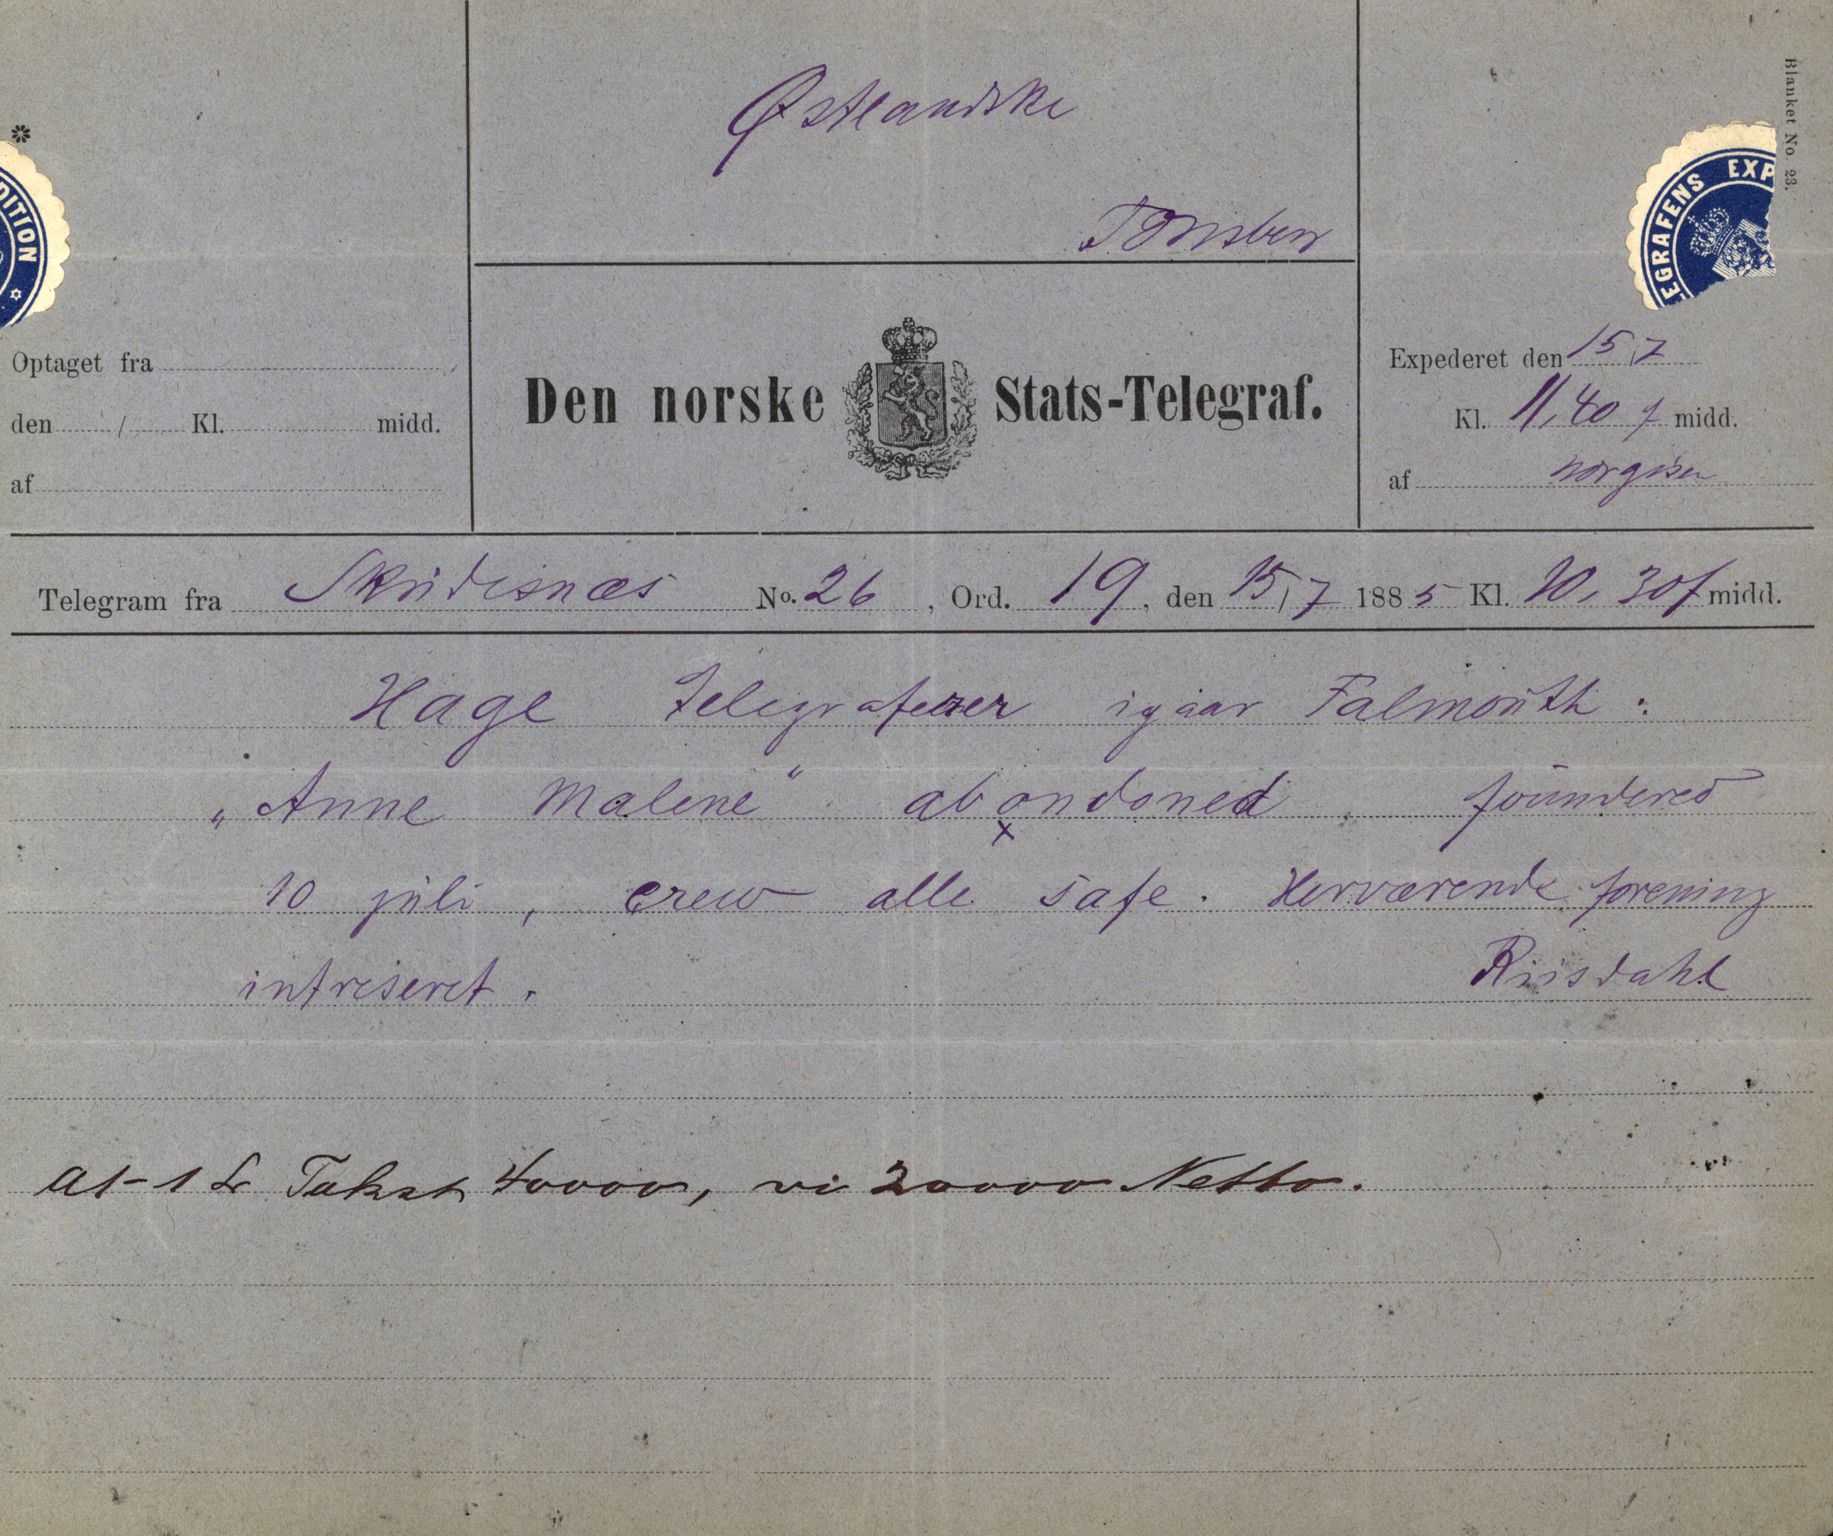 Blanket No. 23.
Østlandske
Tønsberg
DITION
EGRAFENS EXP
Optaget fra
den / Kl. midd.
af
Den norske Stats-Telegraf.
Expederet den 15/7
Kl. 11,40 f midd.
af
Telegram fra Skudesnæs No. 26, Ord. 19, den 15/7 1885 Kl. 10,30 f midd.
Hage telegraferer igaar Falmouth:
„Anne Malene“ abondoned, foundered
10 juli, crew alle safe. Herværende forening
intreseret. Riisdahl
A1-1 Takst 40000, vi 20000 Netto.